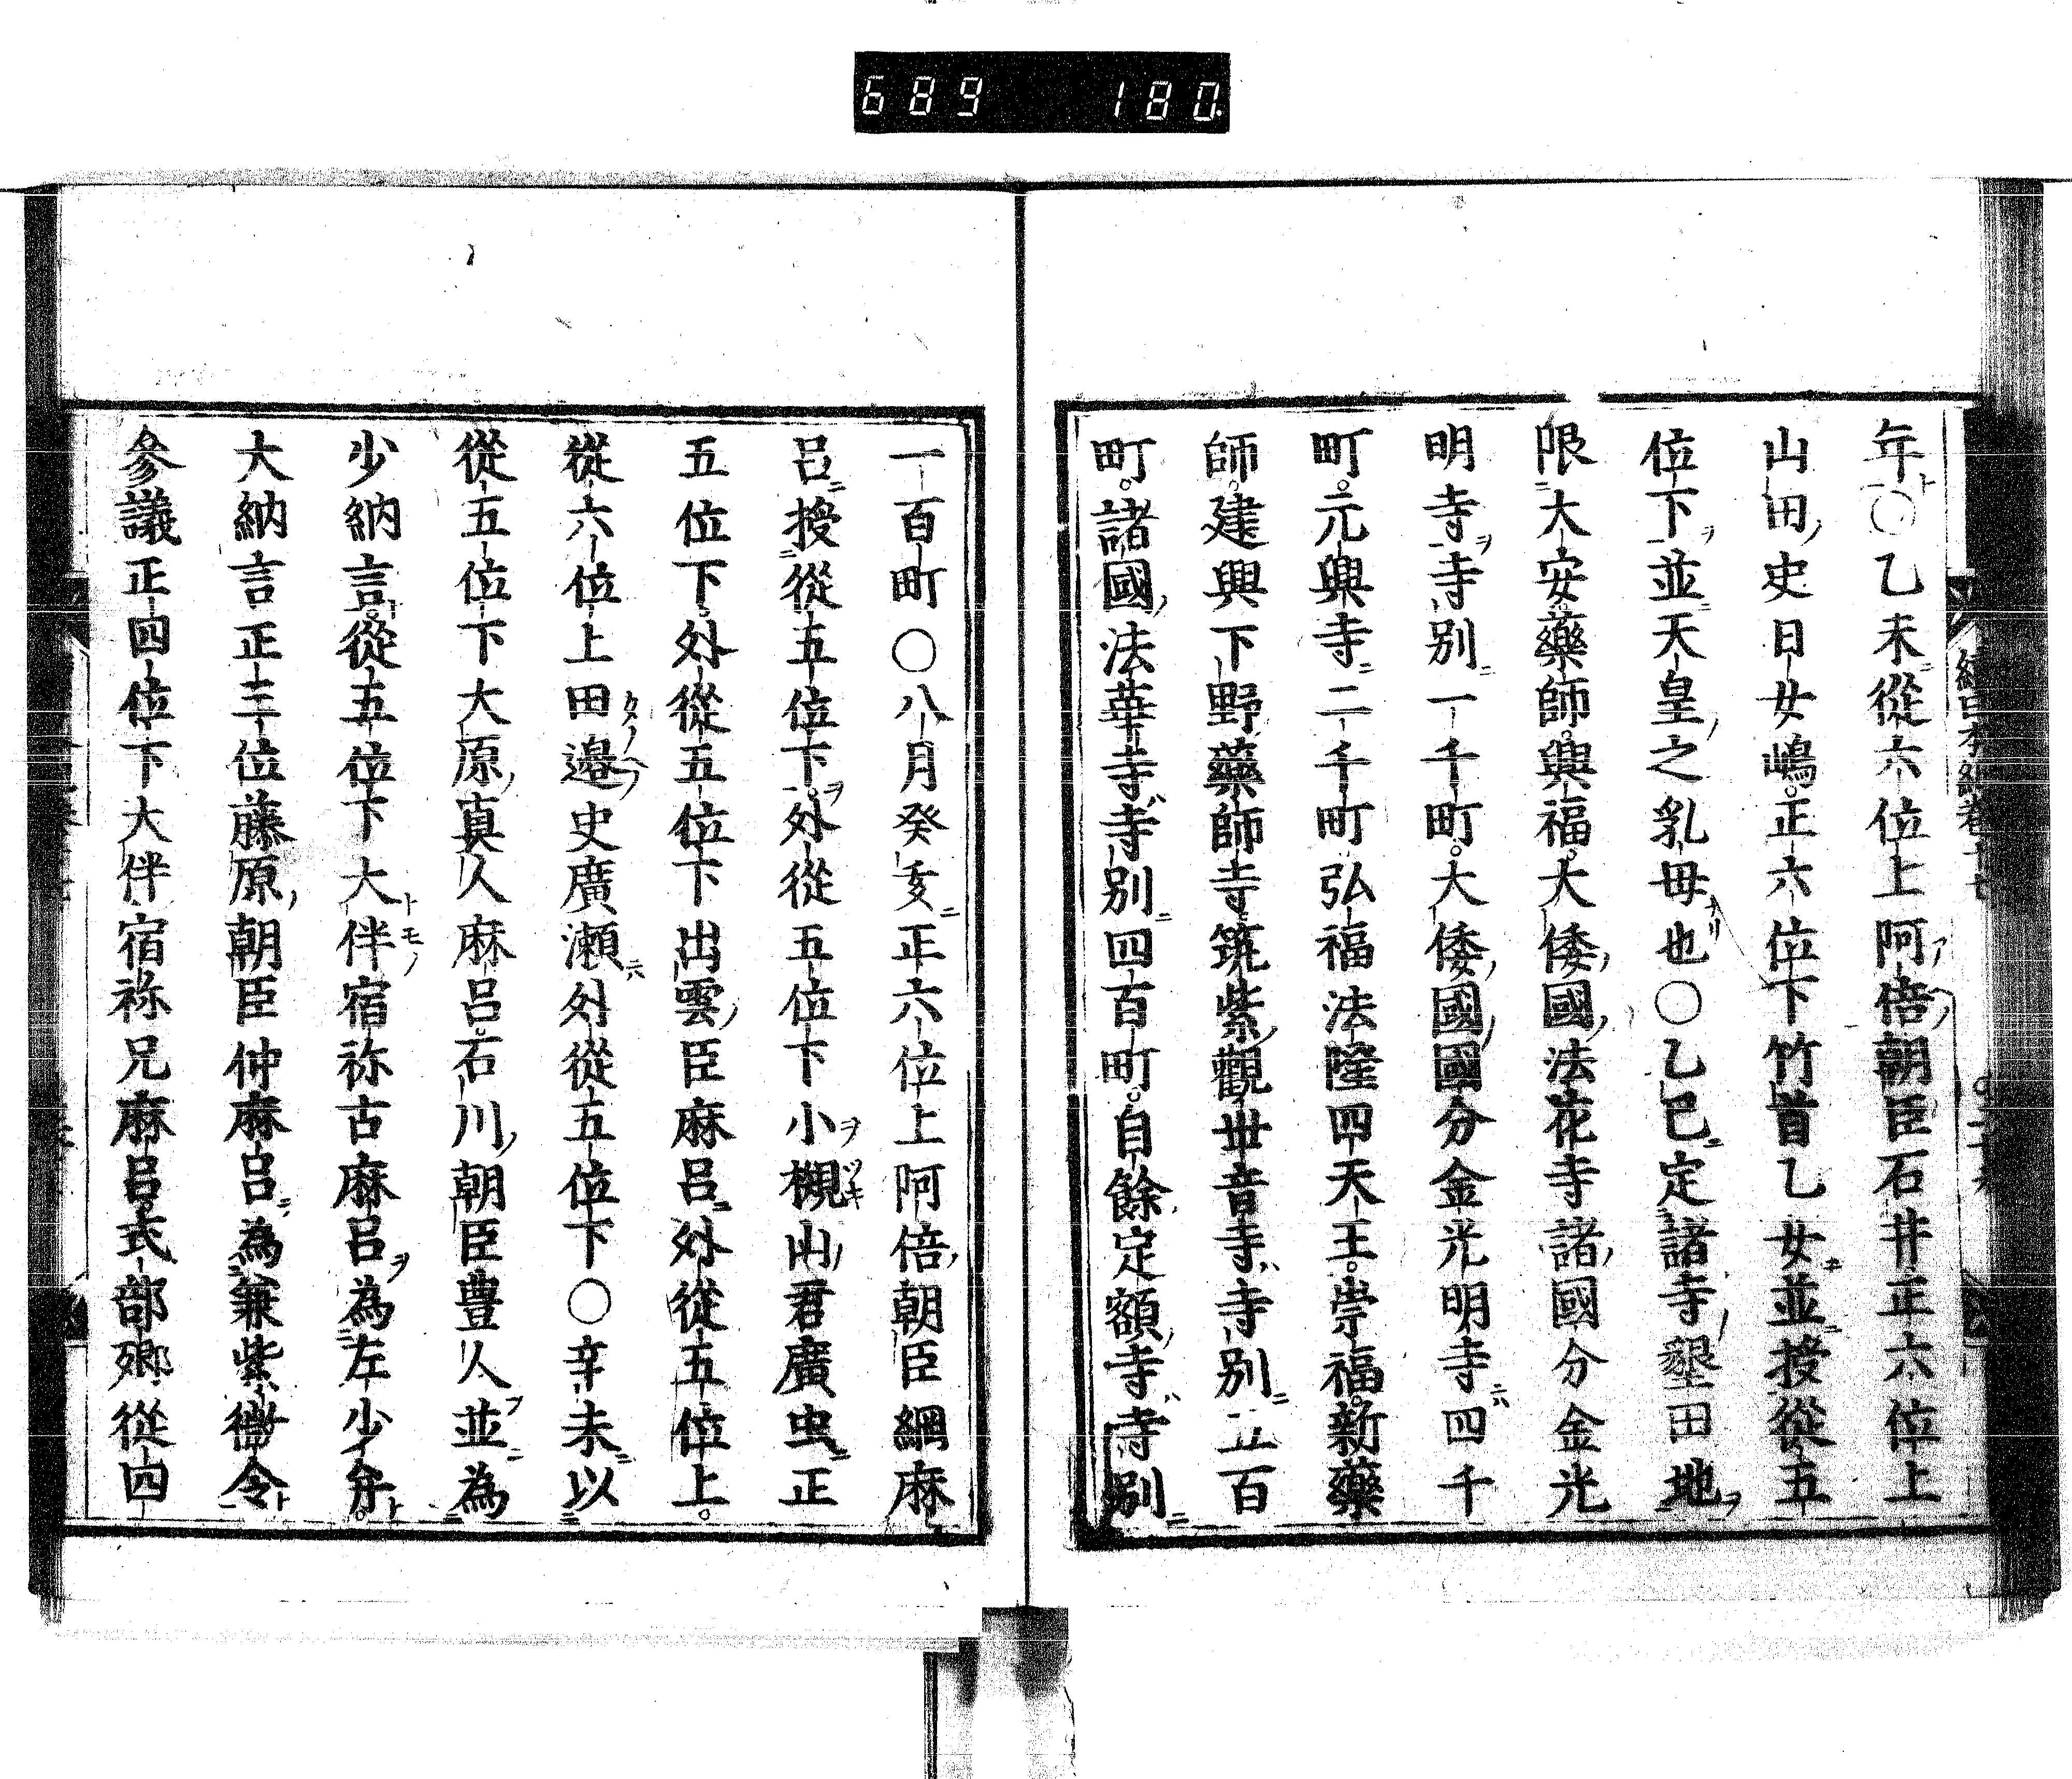 689 180
年○乙未從六位上阿倍朝臣石井正六位上
山田史日女嶋。正六位下竹首乙女並授從五
位下並天皇之乳母也○乙巳定諸寺墾田地
限大安藥師。興福。大倭國法花寺諸國分金光
明寺寺別一千町。大倭國國分金光明寺四千
町。元興寺二千町弘福法隆四天王。崇福新藥
師。建興下野藥師寺筑紫觀世音寺寺別五百
町。諸國法華寺寺別四百町。自餘定額寺寺別
一百町○八月癸亥正六位上阿倍朝臣綱麻
呂授從五位下。外從五位下小槻山君廣虫正
五位下。外從五位下出雲臣麻呂外從五位上。
從六位上田邉史廣瀬外從五位下○辛未以
從五位下大原真人麻呂。石川朝臣豊人並為
少納言。從五位下大伴宿祢古麻呂為左少弁。
大納言正三位藤原朝臣仲麻呂為兼紫微令
參議正四位下大伴宿祢兄麻呂。式部卿從四